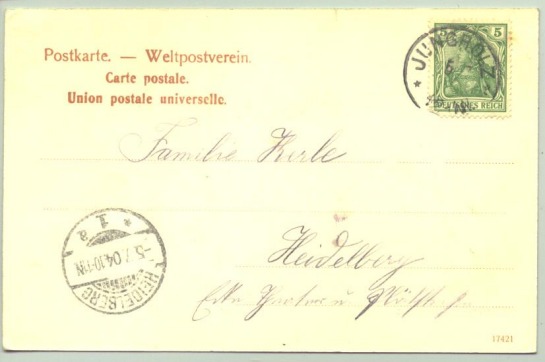 Postkarte. — Weltpostverein.
Carte postale.
Union postale universelle.
5
DEUTSCHES REICH
JUNGHOLZ
5
Familie Kerle
Heidelberg
Ecke
u
* 1 a
-5.7.04.10-11N
HEIDELBERG
17421